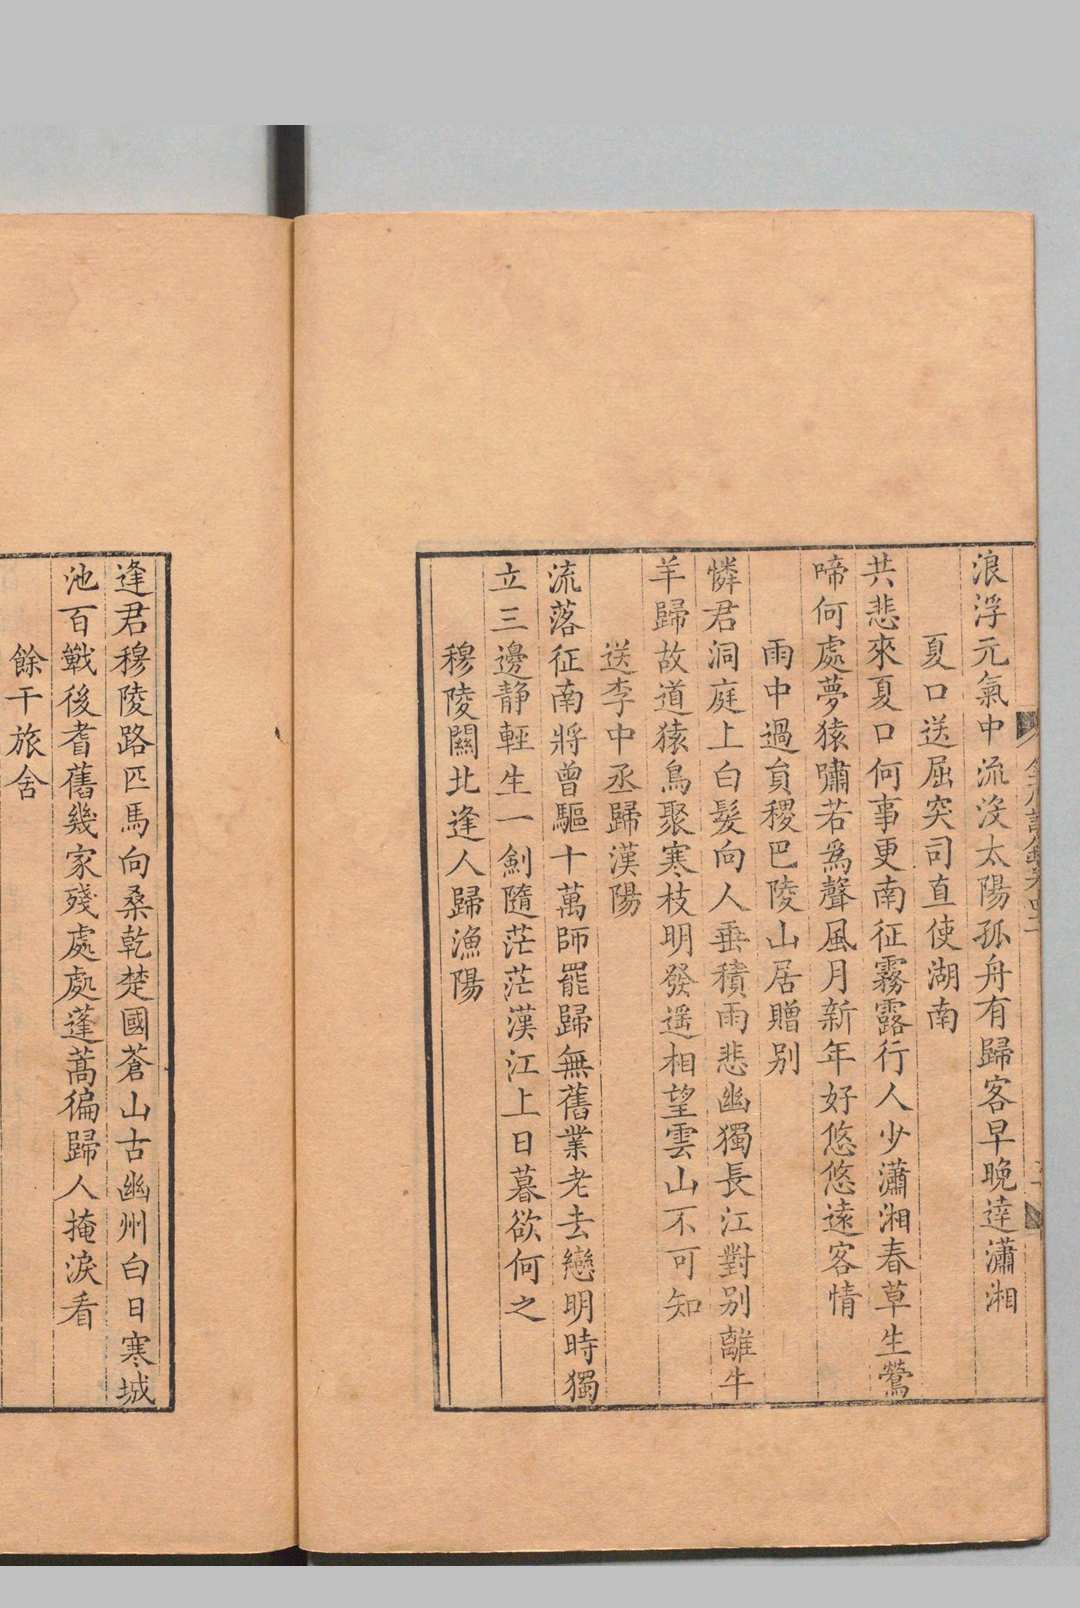 浪浮元氣中流沒太陽孤舟有歸客早晚達瀟湘
夏口送屈突司直使湖南
共悲來夏口何事更南征霧露行人少瀟湘春草生鶯
啼何處夢猿嘯若爲聲風月新年好悠悠遠客情
雨中過貟稷巴陵山居贈别
憐君洞庭上白髮向人垂積雨悲幽獨長江對别離牛
羊歸故道猿鳥聚寒枝明發遥相望雲山不可知
送李中丞歸漢陽
流落征南將曾驅十萬師罷歸無舊業老去戀明時獨
立三邊静輕生一劍隨茫茫漢江上日暮欲何之
穆陵關北逢人歸漁陽
逢君穆陵路匹馬向桑乾楚國蒼山古幽州白日寒城
池百戰後耆舊幾家殘處處蓬蒿徧歸人掩淚看
餘干旅舍